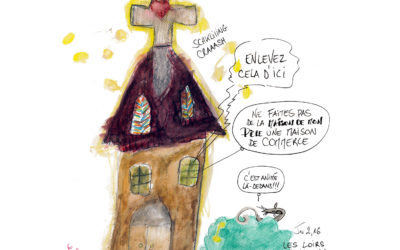 SCHKLIIING
CRAAASH
ENLEVEZ
CELA D'ICI
NE FAITES PAS
DE LA MAISON DE MON
PÈRE UNE MAISON
DE COMMERCE
C'EST ANIMÉ
LÀ-DEDANS!!!
Jn 2,16
LES LOIRS